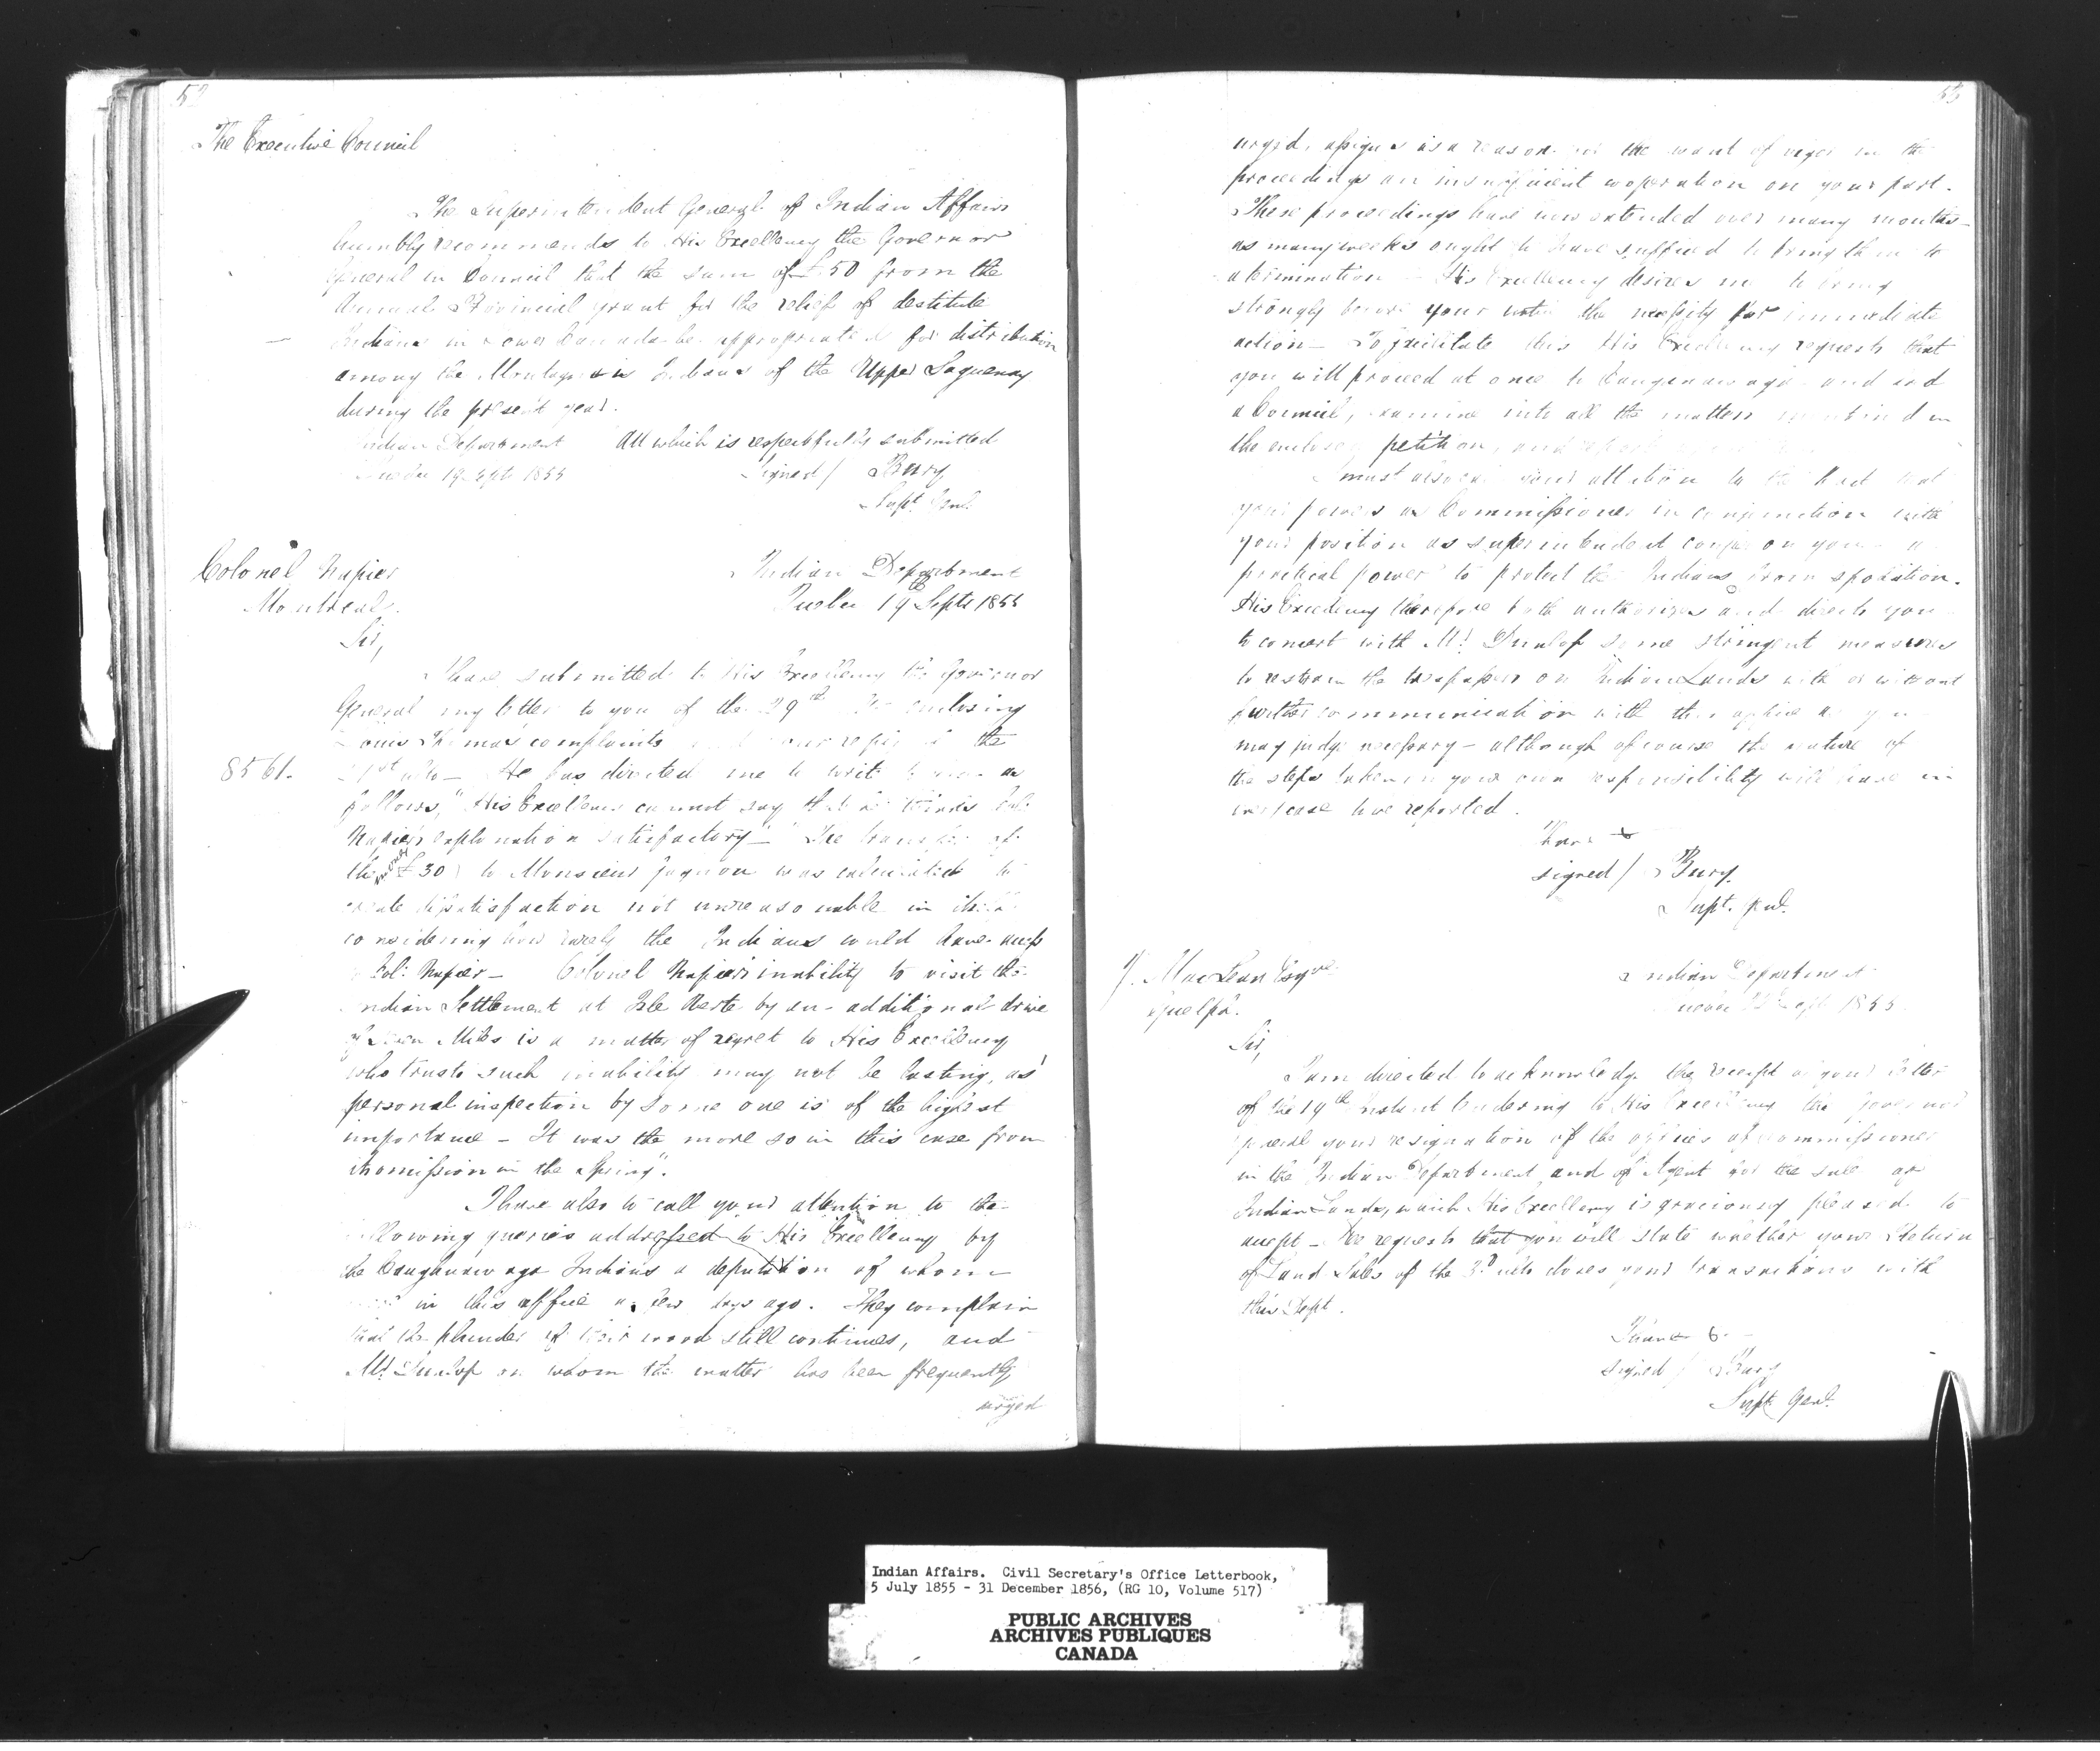 52
The Executive Council
The Superintendent General of Indian Affairs
humbly recommends to His Excellency the Governor
General in Council that the sum of £50 from the
Annual Provincial grant for the relief of destitute
Indians in Lower Canada be appropriated for distribution
among the Montagnais Indians of the Upper Saguenay
during the present year.
Indian Department All which is respectfully submitted
Quebec 19 Sept 1855 signed / Bury
Supt. Genl.
Colonel Napier Indian Department
Montreal. Quebec 19 Septr 1855
Sir,
I have submitted to His Excellency the Governor
General my letter to you of the 29th enclosing
Louis Thomas complaints and your reply of the
8561. ulto - He has directed me to write to you as
follows, "His Excellency cannot say that he thinks Col:
Napier's explanation satisfactory - The transfer of
the money (£30) to Monsieur was calculated to
create dissatisfaction not unreasonable in itself
considering how rarely the Indians could have access
to Col: Napier - Colonel Napier's inability to visit the
Indian Settlement at Isle Verte by an additional drive
of Miles is a matter of regret to His Excellency
who trusts such inability may not be lasting, as
personal inspection by some one is of the highest
importance - It was the more so in this case from
its omission in the Spring".
I have also to call your attention to the
following queries addressed to His Excellency by
the Caughnawaga Indians a deputation of whom
in this office a few days ago. They complain
that the plunder of their wood still continues, and
Mr Dunlop on whom the matter has been frequently
urged
53
urged, assigns as a reason for the want of vigor in the
proceedings an insufficient cooperation on your part.
These proceedings have now extended over many months -
as many weeks ought to have sufficed to bring them to
a termination - His Excellency desires me to bring
strongly before your notice the necessity for immediate
action - To facilitate this His Excellency requests that
you will proceed at once to Caughnawaga and
a Council, examine into all the matters contained in
the enclosed petition, and report
I must also call your attention to the fact that
your powers as Commissioner in conjunction with
your position as superintendent confer on you a
practical power to protect the Indians from spoliation.
His Excellency therefore both authorizes and directs you
to concert with Mr Dunlop some stringent measures
to restrain the trespassers on Indian Lands with or without
further communication with this office as you
may judge necessary - although of course the nature of
the steps taken on your own responsibility will have in
every case to be reported.
I have &
signed / Bury.
Supt. Genl.
MacLean Esqre Indian Department
Guelph. Quebec Sept 1855
Sir,
I am directed to acknowledge the receipt of your letter
of the 19th Instant tendering to His Excellency the Governor
General your resignation of the offices of Commissioner
in the Indian Department and of Agent for the sale of
Indian Lands, which His Excellency is graciously pleased to
accept - He requests that you will state whether your Return
of Land Sales of the 3rd ulto closes your transactions with
this Dept.
I have &
signed / Bury
Supt. Genl.
Indian Affairs. Civil Secretary's Office Letterbook,
5 July 1855 - 31 December 1856, (RG 10, Volume 517)
PUBLIC ARCHIVES
ARCHIVES PUBLIQUES
CANADA